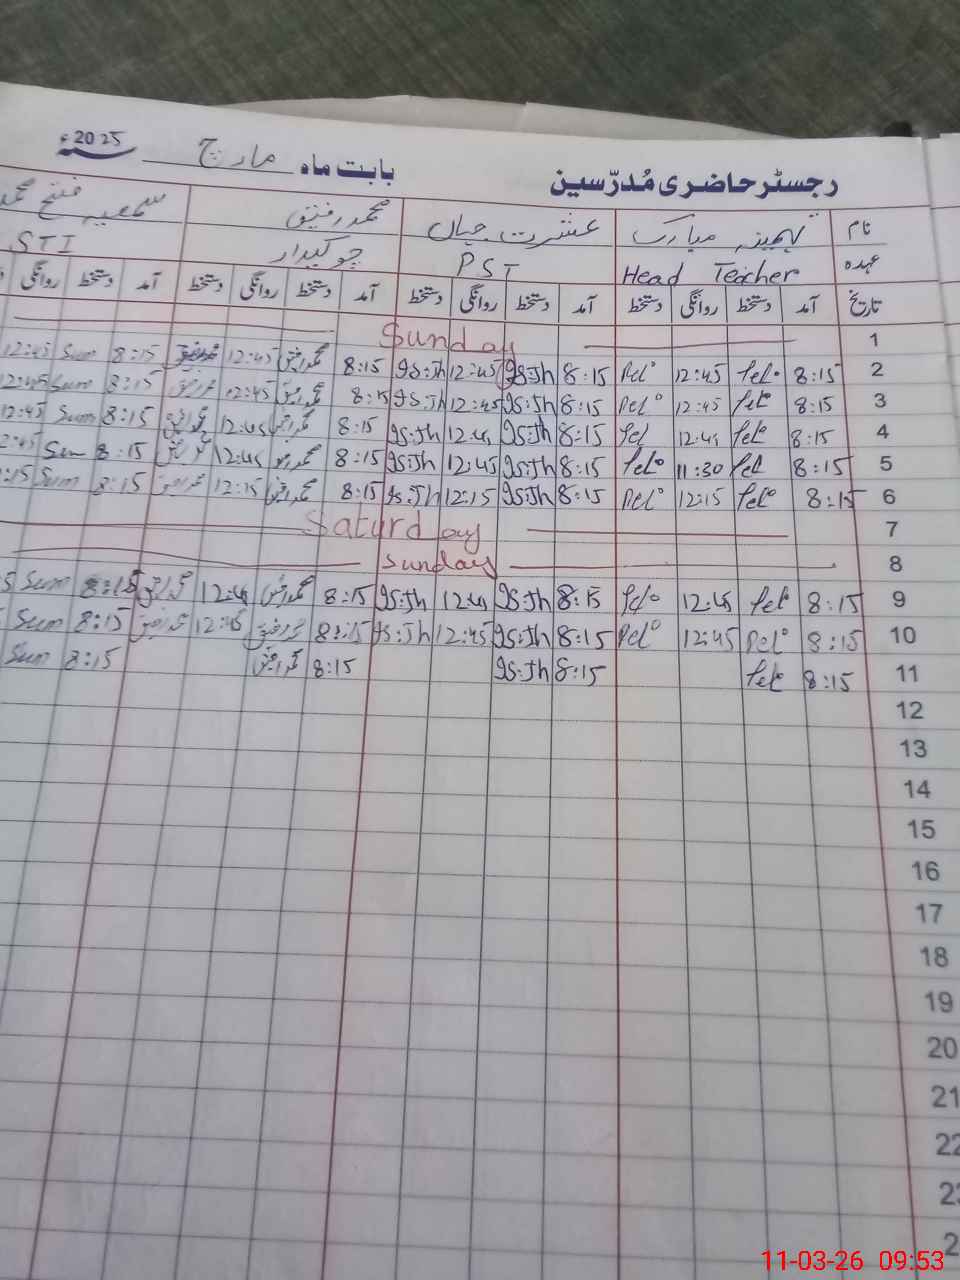 رجسٹر حاضری مُدرّسین بابت ماہ مارچ سنہ 2025ء
نام تہمینہ مبارک عشرت جہاں محمد رفیق سمعیہ فتح محمد
عہدہ Head Teacher PST چوکیدار STI
تاریخ آمد دستخط روانگی دستخط آمد دستخط روانگی دستخط آمد دستخط روانگی دستخط آمد دستخط روانگی
1 Sunday
2 8:15 12:45 8:15 12:45 8:15 محمد رفیق 12:45 8:15 Sum 12:45
3 8:15 12:45 8:15 12:45 8:15 محمد رفیق 12:45 محمد رفیق 8:15 Sum 12:45
4 8:15 12:45 8:15 12:45 8:15 محمد رفیق 12:45 محمد رفیق 8:15 Sum 12:45
5 8:15 11:30 8:15 12:45 8:15 محمد رفیق 12:45 محمد رفیق 8:15 Sum 2:45
6 8:15 12:15 8:15 12:15 8:15 محمد رفیق 12:15 محمد رفیق 8:15 Sum :15
7 Saturday
8 Sunday
9 8:15 12:45 8:15 12:45 8:15 محمد رفیق 12:45 محمد رفیق 8:15 Sum 5
10 8:15 12:45 8:15 12:45 8:15 محمد رفیق 12:45 محمد رفیق 8:15 Sum
11 8:15 8:15 8:15 محمد رفیق 8:15 Sum
12
13
14
15
16
17
18
19
20
21
22
23
2
11-03-26 09:53